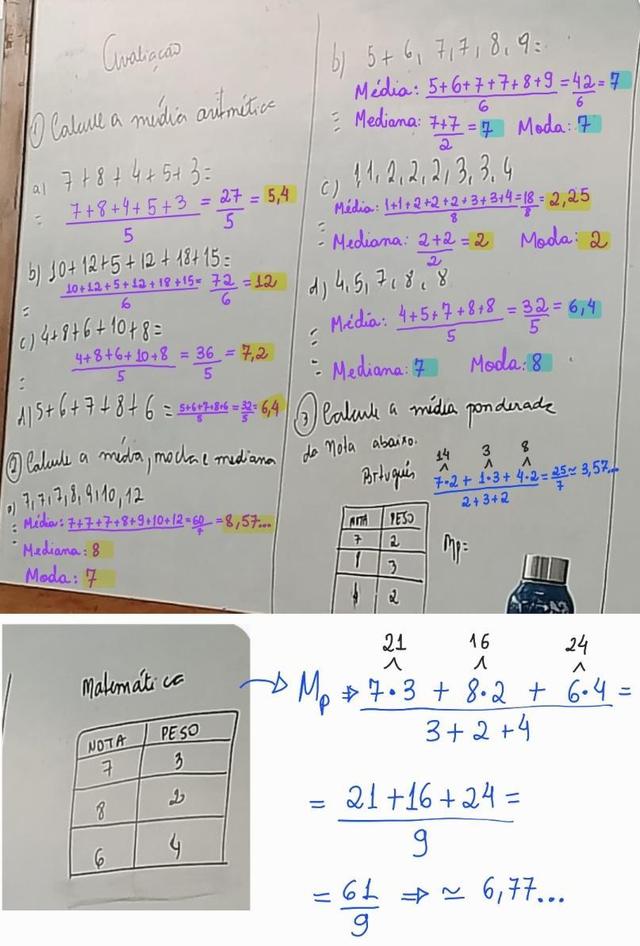 Avaliação
① Calcule a média aritmética
a) 7+8+4+5+3=
= 7+8+4+5+3/5 = 27/5 = 5,4
b) 10+12+5+12+18+15=
= 10+12+5+12+18+15/6 = 72/6 = 12
c) 4+8+6+10+8=
= 4+8+6+10+8/5 = 36/5 = 7,2
d) 5+6+7+8+6 = 5+6+7+8+6/5 = 32/5 = 6,4
② Calcule a média, moda e mediana
a) 7,7,7,8,9,10,12
= Média: 7+7+7+8+9+10+12/7 = 60/7 = 8,57...
Mediana: 8
Moda: 7
b) 5+6,7,7,8,9=
Média: 5+6+7+7+8+9/6 = 42/6 = 7
= Mediana: 7+7/2 = 7 Moda: 7
c) 1,1,2,2,2,3,3,4
Média: 1+1+2+2+2+3+3+4/8 = 18/8 = 2,25
= Mediana: 2+2/2 = 2 Moda: 2
d) 4,5,7,8,8
= Média: 4+5+7+8+8/5 = 32/5 = 6,4
= Mediana: 7 Moda: 8
③ Calcule a média ponderada
da nota abaixo.
Português
14 3 8
7·2 + 1·3 + 4·2/2+3+2 = 25/7 ≃ 3,57...
NOTA PESO
7 2
1 3
4 2
Mp=
Matemática
NOTA PESO
7 3
8 2
6 4
21 16 24
Mp ⇒ 7·3 + 8·2 + 6·4/3+2+4 =
= 21+16+24/9 =
= 61/9 ⇒ ≃ 6,77...